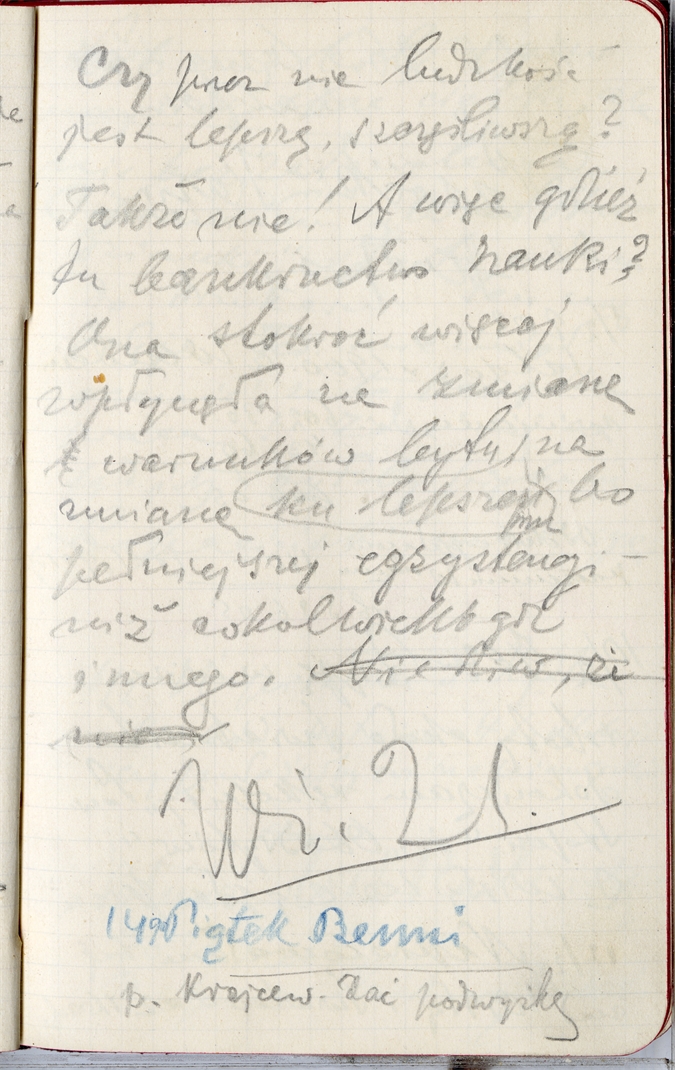 Czy przez nie ludzkość
jest lepszą, szczęśliwszą?
Także nie! A więc gdzież
tu bankructwo nauki?
Ona stokroć więcej
wpłynęła na zmianę
warunków bytu, na
zmianę ku lepszej, bo
pełniejszej egzystencji –
niż cokolwiekbądź
innego. Nie dziw, że
nie
Wł.
Piątek Benni
p. Krajcew. Dać podwyżkę